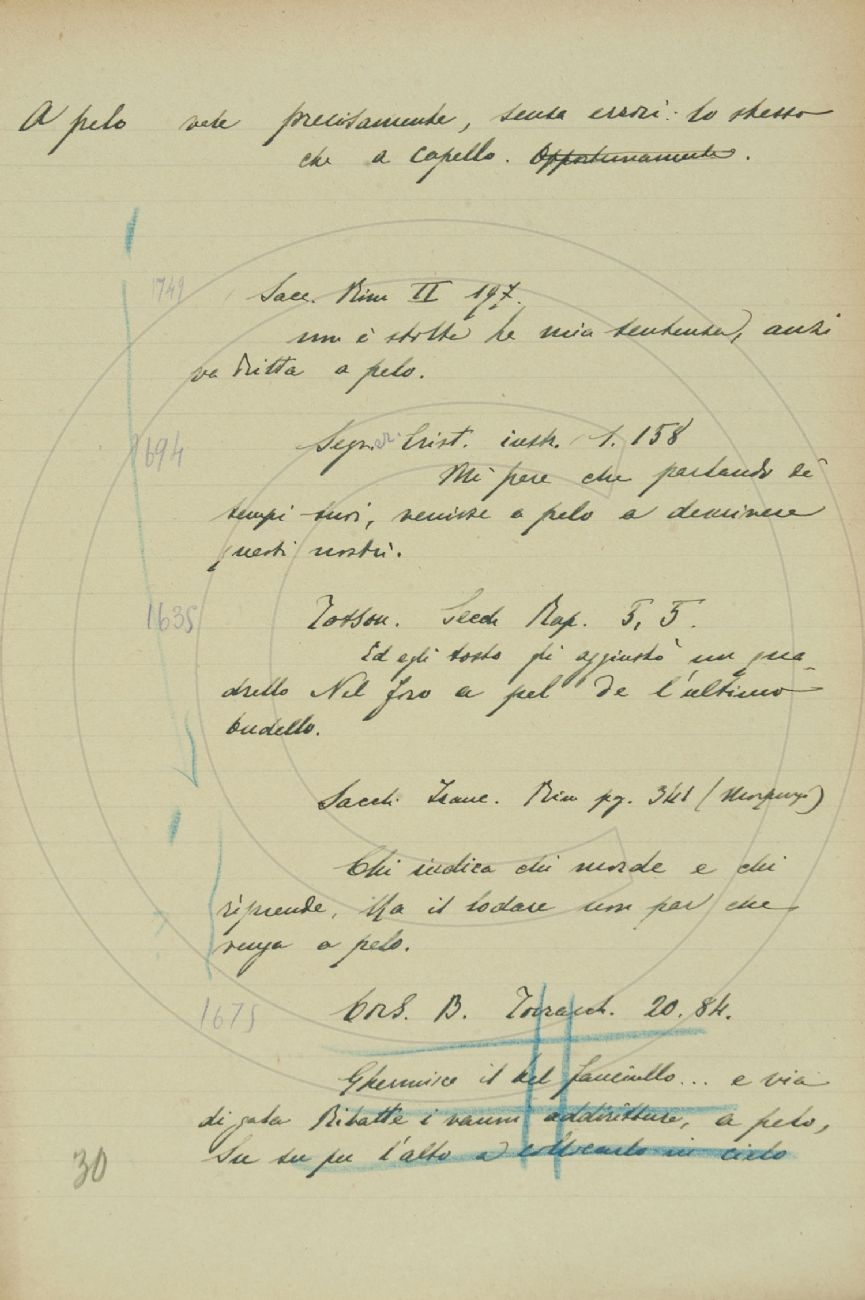 A pelo vale precisamente, senza errori: lo stesso
che a capello. Opportunamente.
1749
Sacc. Rim II 197.
non è stolta la mia sentenza, anzi
va dritta a pelo.
1694
Segner. Crist. instr. 1. 158
Mi pare che parlando de'
tempi suoi, venisse a pelo a descrivere
questi nostri.
1635
Tasson. Secch. Rap. 5, 5.
Ed egli tosto gli aggiustò un qua-
drello Nel foro a pel de l'ultimo
budello.
Sacch. Franc. Rim pg. 341 (Morpurgo)
Chi indica chi morde e chi
riprende, Ma il lodare non par che
venga a pelo.
1675
Cors. B. Torrach. 20. 84.
Ghermisce il bel fanciullo... e via
di gala Ribatte i vanni addirittura, a pelo,
Su su per l'alto a collocarlo in cielo
30